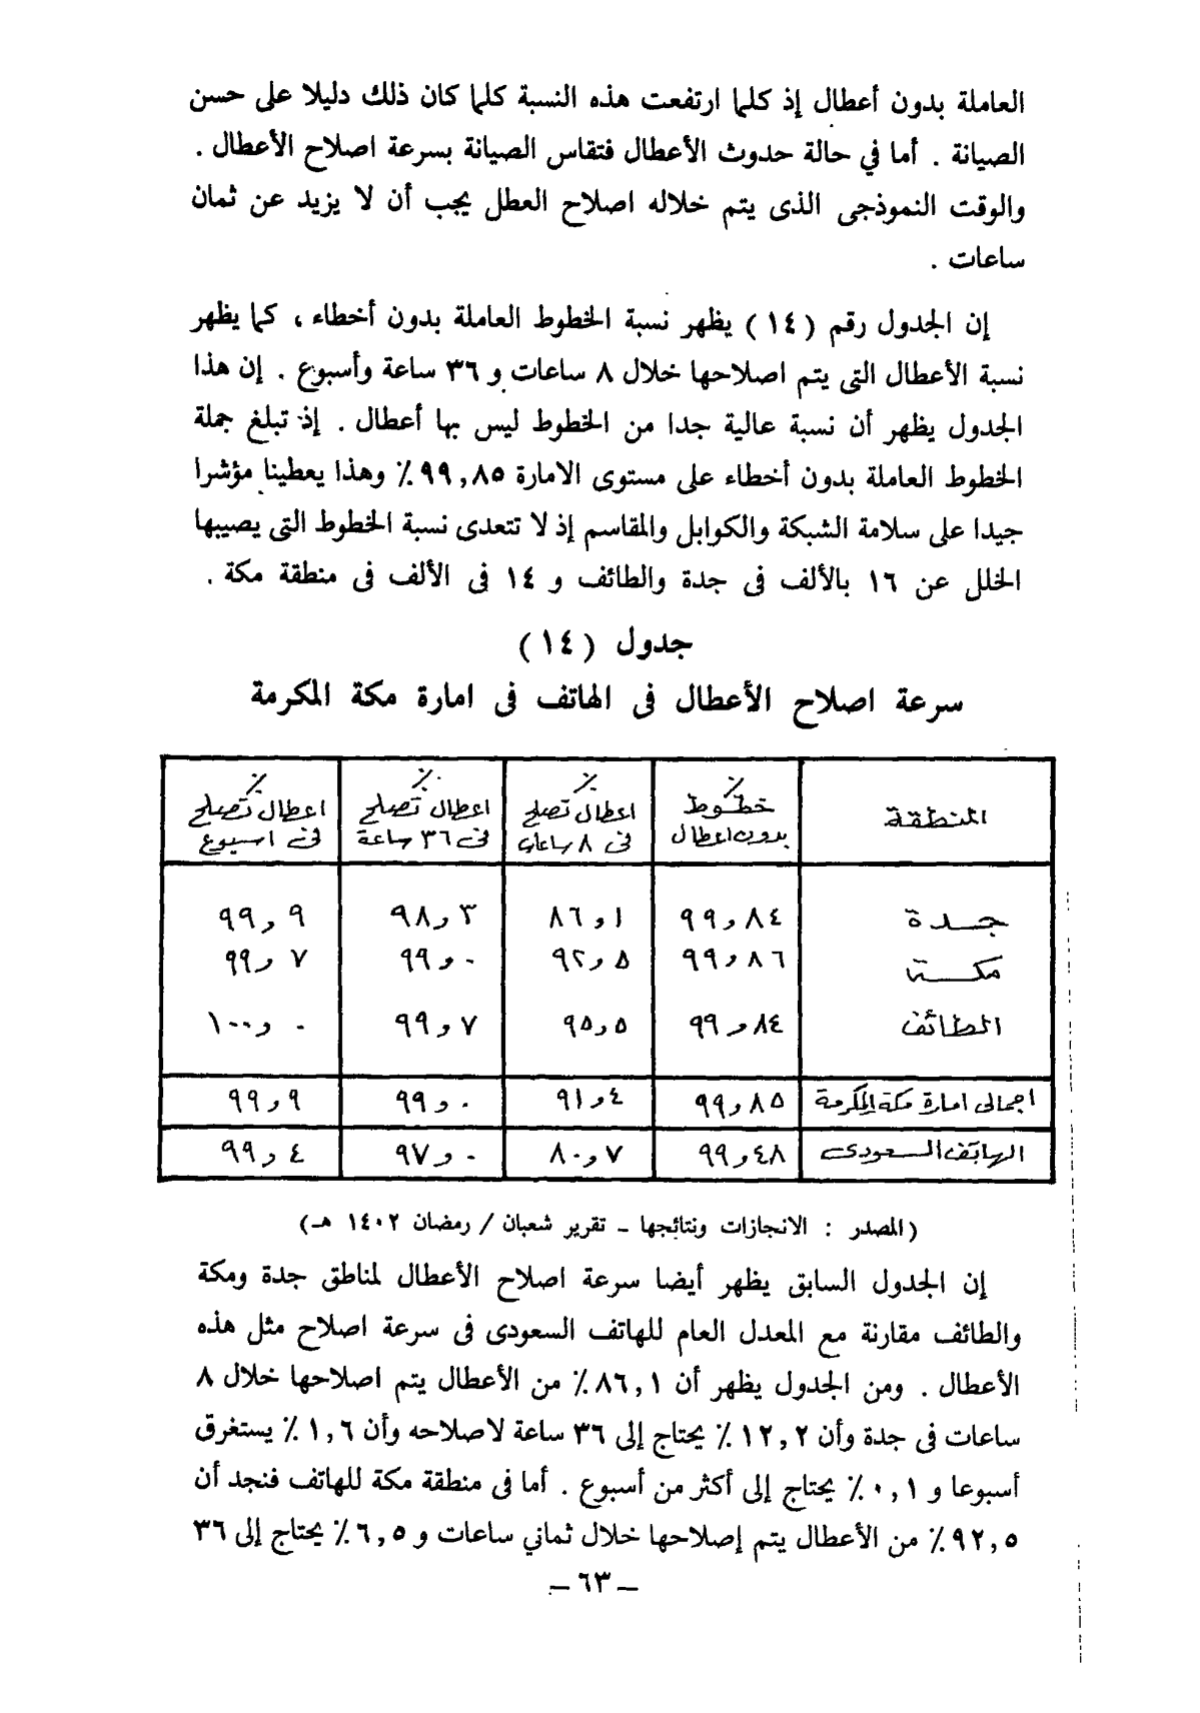 العاملة بدون أعطال إذ كلما ارتفعت هذه النسبة كلما كان ذلك دليلا على حسن
الصيانة . أما في حالة حدوث الأعطال فتقاس الصيانة بسرعة اصلاح الأعطال .
والوقت النموذجى الذى يتم خلاله اصلاح العطل يجب أن لا يزيد عن ثمان
ساعات .
إن الجدول رقم (١٤) يظهر نسبة الخطوط العاملة بدون أخطاء ، كما يظهر
نسبة الأعطال التى يتم اصلاحها خلال ٨ ساعات و ٣٦ ساعة وأسبوع . إن هذا
الجدول يظهر أن نسبة عالية جدا من الخطوط ليس بها أعطال . إذ تبلغ جملة
الخطوط العاملة بدون أخطاء على مستوى الامارة ٩٩,٨٥٪ وهذا يعطينا مؤشرا
جيدا على سلامة الشبكة والكوابل والمقاسم إذ لا تتعدى نسبة الخطوط التى يصيبها
الخلل عن ١٦ بالألف فى جدة والطائف و ١٤ فى الألف فى منطقة مكة .
جدول (١٤)
سرعة اصلاح الأعطال فى الهاتف فى امارة مكة المكرمة
المنطقة | ٪ خطوط بدون اعطال | ٪ اعطال تصلح فى ٨ ساعات | ٪ اعطال تصلح فى ٣٦ ساعة | ٪ اعطال تصلح فى اسبوع
جدة | ٩٩و٨٤ | ٨٦و١ | ٩٨و٣ | ٩٩و٩
مكة | ٩٩و٨٦ | ٩٢و٥ | ٩٩و٠ | ٩٩و٧
الطائف | ٩٩و٨٤ | ٩٥و٥ | ٩٩و٧ | ١٠٠و٠
اجمالى امارة مكة المكرمة | ٩٩و٨٥ | ٩١و٤ | ٩٩و٠ | ٩٩و٩
الهاتف السعودى | ٩٩و٤٨ | ٨٠و٧ | ٩٧و٠ | ٩٩و٤
(المصدر : الانجازات ونتائجها ـ تقرير شعبان / رمضان ١٤٠٢ هـ)
إن الجدول السابق يظهر أيضا سرعة اصلاح الأعطال لمناطق جدة ومكة
والطائف مقارنة مع المعدل العام للهاتف السعودى فى سرعة اصلاح مثل هذه
الأعطال . ومن الجدول يظهر أن ٨٦,١٪ من الأعطال يتم اصلاحها خلال ٨
ساعات فى جدة وأن ١٢,٢ ٪ يحتاج إلى ٣٦ ساعة لاصلاحه وأن ١,٦ ٪ يستغرق
أسبوعا و ٠,١٪ يحتاج إلى أكثر من أسبوع . أما فى منطقة مكة للهاتف فنجد أن
٩٢,٥٪ من الأعطال يتم إصلاحها خلال ثماني ساعات و ٦,٥٪ يحتاج إلى ٣٦
– ٦٣ –